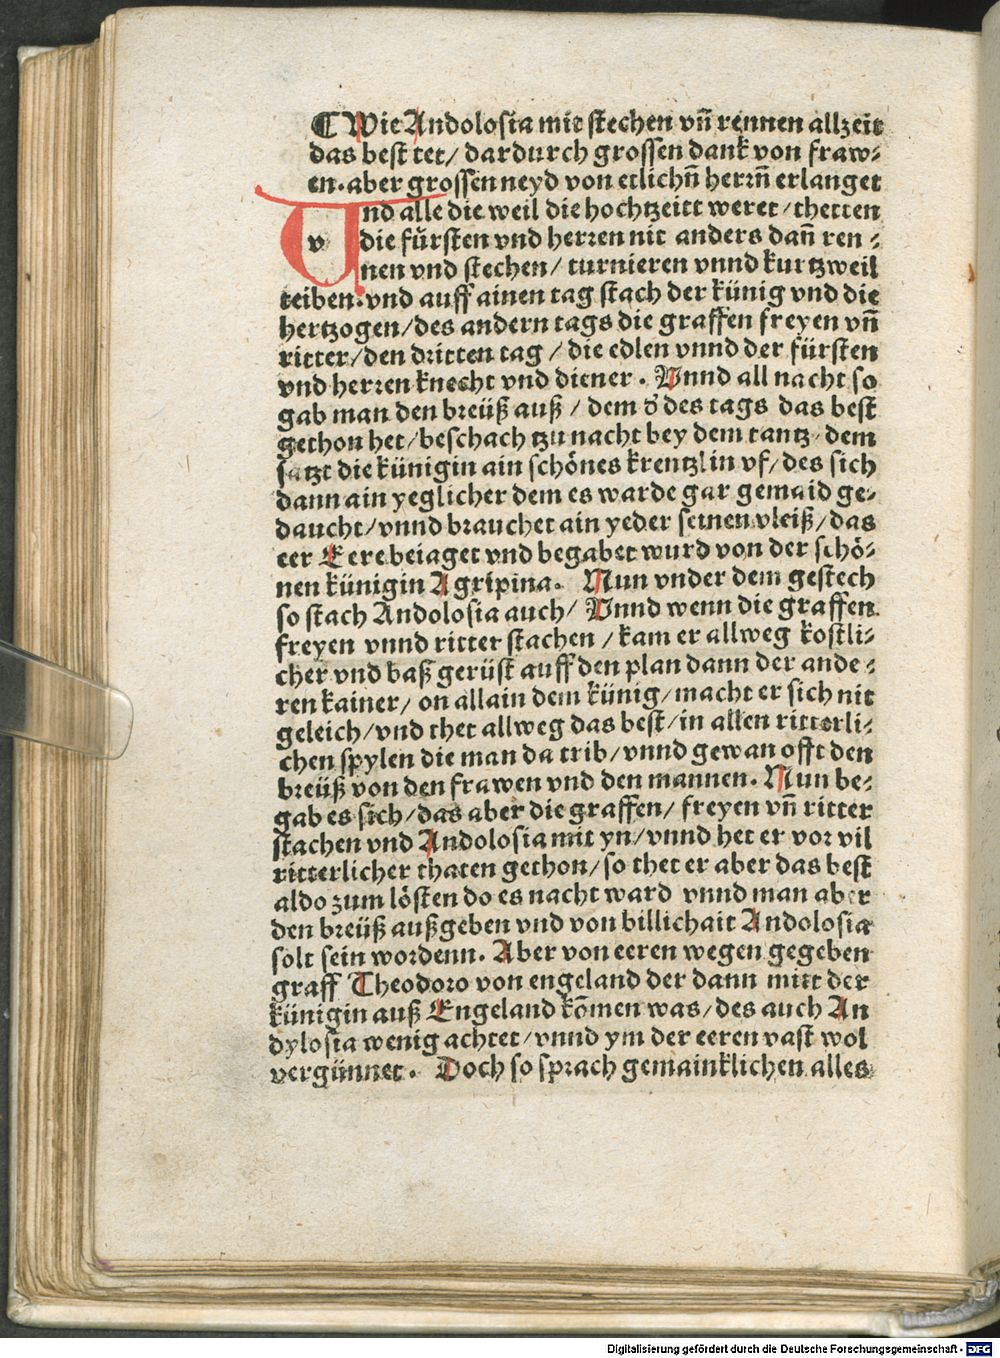 ¶ Wie Andolosia mit stechen vn̄ rennen allzeit
das best tet/ dardurch grossen dank von fraw⸗
en. aber grossen neyd von etlichn̄ herrn̄ erlanget
Vnd alle die weil die hochtzeitt weret/ thetten
die fürsten vnd herren nit anders dan̄ ren⸗
nen vnd stechen/ turnieren vnnd kurtzweil
teiben. vnd auff ainen tag stach der künig vnd die
hertzogen/ des andern tags die graffen freyen vn̄
ritter/ den dritten tag/ die edlen vnnd der fürsten
vnd herren knecht vnd diener. Vnnd all nacht so
gab man den breüß auß/ dem d' des tags das best
gethon het/ beschach tzu nacht bey dem tantz/ dem
satzt die künigin ain schönes krentzlin vf/ des sich
dann ain yeglicher dem es warde gar gemaid ge⸗
daucht/ vnnd brauchet ain yeder seinen vleiß/ das
eer Eere beiaget vnd begabet wurd von der schö⸗
nen künigin Agripina. Nun vnder dem gestech
so stach Andolosia auch/ Vnnd wenn die graffen
freyen vnnd ritter stachen/ kam er allweg kostli⸗
cher vnd baß gerüst auff den plan dann der ande⸗
ren kainer/ on allain dem künig/ macht er sich nit
geleich/ vnd thet allweg das best/ in allen ritterli⸗
chen spylen die man da trib/ vnnd gewan offt den
breüß von den frawen vnd den mannen. Nun be⸗
gab es sich/ das aber die graffen/ freyen vn̄ ritter
stachen vnd Andolosia mit yn/ vnnd het er vor vil
ritterlicher thaten gethon/ so thet er aber das best
aldo zum lösten do es nacht ward vnnd man aber
den breüß außgeben vnd von billichait Andolosia
solt sein wordenn. Aber von eeren wegen gegeben
graff Theodoro von engeland der dann mitt der
künigin auß Engeland kōmen was/ des auch An
dylosia wenig achtet/ vnnd ym der eeren vast wol
vergünnet. Doch so sprach gemainklichen alles
Digitalisierung gefördert durch die Deutsche Forschungsgemeinschaft - DFG